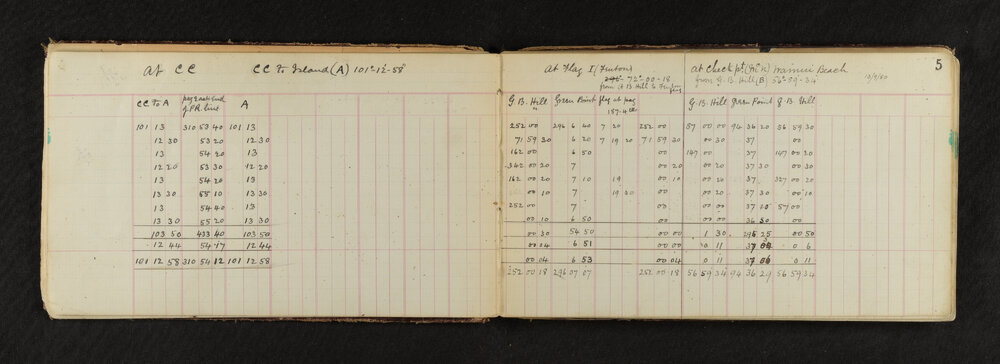 at CC
CC to Island (A) 101°-12'-58"
CC to A peg East End A
of P.R. line
101 13 310 53 40 101 13
12 30 53 20 12 30
13 54 20 13
12 20 53 30 12 20
13 54 20 13
13 30 55 10 13 30
13 54 40 13
13 30 55 20 13 30
103 50 433 40 103 50
12 44 54 17 12 44
101 12 58 310 54 12 101 12 58
5
at Flag I (Fenton)
72°-00-18
from G B Hill to Fenton
G. B. Hill Green Point flag at peg
252 00 296 6 40 7 20 252 00
71 59 30 6 20 7 19 20 71 59 30
162 00 6 50 00
342 00 20 7 00 20
162 00 20 7 10 19 00 10
00 10 7 19 20 00 20
252 00 7 00
00 10 6 50
00 30 54 50 00 00
00 04 6 51 00 00
00 04 6 53 00 04
252 00 18 296 07 07 252 00 18
at Check pt. Wainui Beach
from G. B. Hill (B) 56°-59-34
10/9/30
G. B. Hill Green Point G. B. Hill
57 00 00 94 36 20 56 59 30
00 30 37 00
147 00 37 147 00 20
00 20 37 30 00 30
00 20 37 327 00 20
00 20 37 30 00 10
00 00 37 10 57 00
00 00 36 50 00
1 30 295 25 00 50
0 11 0 6
0 11 0 11
56 59 34 94 36 29 56 59 34